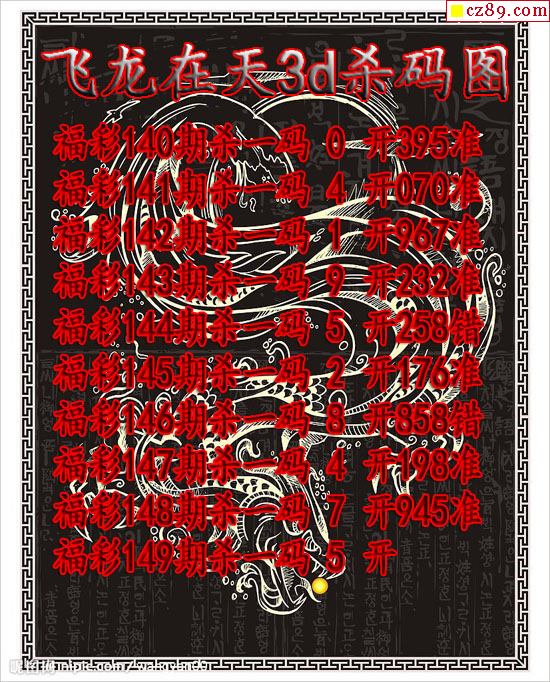 cz89.com
飞龙在天3d杀码图
福彩140期杀一码 0 开395准
福彩141期杀一码 4 开070准
福彩142期杀一码 1 开967准
福彩143期杀一码 9 开232准
福彩144期杀一码 5 开258错
福彩145期杀一码 2 开176准
福彩146期杀一码 8 开858错
福彩147期杀一码 4 开198准
福彩148期杀一码 7 开945准
福彩149期杀一码 5 开